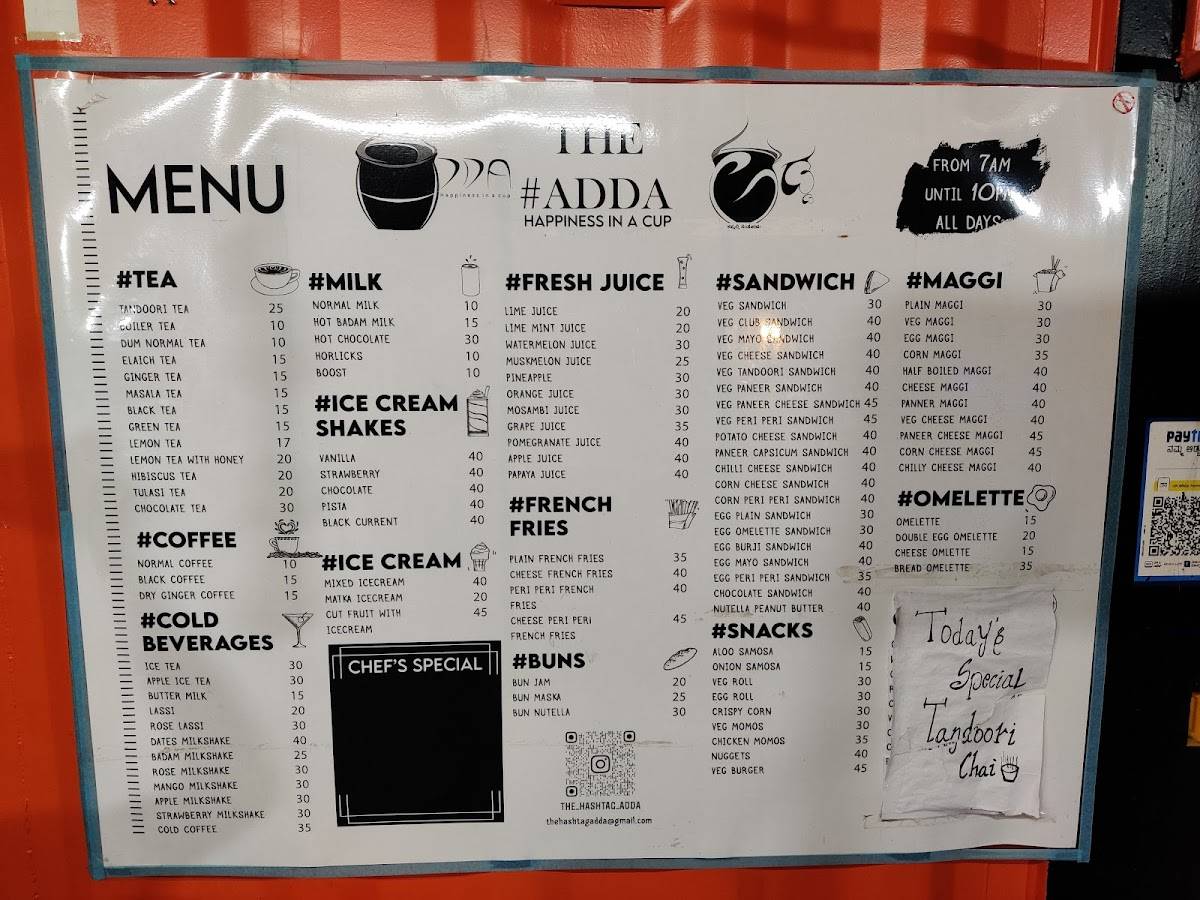 MENU
DDA
Happiness in a cup
THE
#ADDA
HAPPINESS IN A CUP
FROM 7AM
UNTIL 10PM
ALL DAYS
#TEA
TANDOORI TEA 25
BOILER TEA 10
DUM NORMAL TEA 10
ELAICH TEA 15
GINGER TEA 15
MASALA TEA 15
BLACK TEA 15
GREEN TEA 15
LEMON TEA 17
LEMON TEA WITH HONEY 20
HIBISCUS TEA 20
TULASI TEA 20
CHOCOLATE TEA 30
#COFFEE
NORMAL COFFEE 10
BLACK COFFEE 15
DRY GINGER COFFEE 15
#COLD
BEVERAGES
ICE TEA 30
APPLE ICE TEA 30
BUTTER MILK 15
LASSI 20
ROSE LASSI 30
DATES MILKSHAKE 40
BADAM MILKSHAKE 25
ROSE MILKSHAKE 30
MANGO MILKSHAKE 30
APPLE MILKSHAKE 30
STRAWBERRY MILKSHAKE 30
COLD COFFEE 35
#MILK
NORMAL MILK 10
HOT BADAM MILK 15
HOT CHOCOLATE 30
HORLICKS 10
BOOST 10
#ICE CREAM
SHAKES
VANILLA 40
STRAWBERRY 40
CHOCOLATE 40
PISTA 40
BLACK CURRENT 40
#ICE CREAM
MIXED ICECREAM 40
MATKA ICECREAM 20
CUT FRUIT WITH 45
ICECREAM
CHEF'S SPECIAL
#FRESH JUICE
LIME JUICE 20
LIME MINT JUICE 20
WATERMELON JUICE 30
MUSKMELON JUICE 25
PINEAPPLE 30
ORANGE JUICE 30
MOSAMBI JUICE 30
GRAPE JUICE 35
POMEGRANATE JUICE 40
APPLE JUICE 40
PAPAYA JUICE 40
#FRENCH
FRIES
PLAIN FRENCH FRIES 35
CHEESE FRENCH FRIES 40
PERI PERI FRENCH 40
FRIES
CHEESE PERI PERI 45
FRENCH FRIES
#BUNS
BUN JAM 20
BUN MASKA 25
BUN NUTELLA 30
THE_HASHTAG_ADDA
thehashtagadda@gmail.com
#SANDWICH
VEG SANDWICH 30
VEG CLUB SANDWICH 40
VEG MAYO SANDWICH 40
VEG CHEESE SANDWICH 40
VEG TANDOORI SANDWICH 40
VEG PANEER SANDWICH 40
VEG PANEER CHEESE SANDWICH 45
VEG PERI PERI SANDWICH 40
POTATO CHEESE SANDWICH 40
PANEER CAPSICUM SANDWICH 40
CHILLI CHEESE SANDWICH 40
CORN CHEESE SANDWICH 40
CORN PERI PERI SANDWICH 40
EGG PLAIN SANDWICH 30
EGG OMELETTE SANDWICH 30
EGG BURJI SANDWICH 40
EGG MAYO SANDWICH 40
EGG PERI PERI SANDWICH 35
CHOCOLATE SANDWICH 40
NUTELLA PEANUT BUTTER 40
#SNACKS
ALOO SAMOSA 15
ONION SAMOSA 15
VEG ROLL 30
EGG ROLL 30
CRISPY CORN 30
VEG MOMOS 30
CHICKEN MOMOS 35
NUGGETS 40
VEG BURGER 45
#MAGGI
PLAIN MAGGI 30
VEG MAGGI 30
EGG MAGGI 30
CORN MAGGI 35
HALF BOILED MAGGI 40
CHEESE MAGGI 40
PANNER MAGGI 40
VEG CHEESE MAGGI 40
PANEER CHEESE MAGGI 45
CORN CHEESE MAGGI 45
CHILLY CHEESE MAGGI 40
#OMELETTE
OMELETTE 15
DOUBLE EGG OMELETTE 20
CHEESE OMLETTE 15
BREAD OMELETTE 35
Today's
Special
Tandoori
Chai